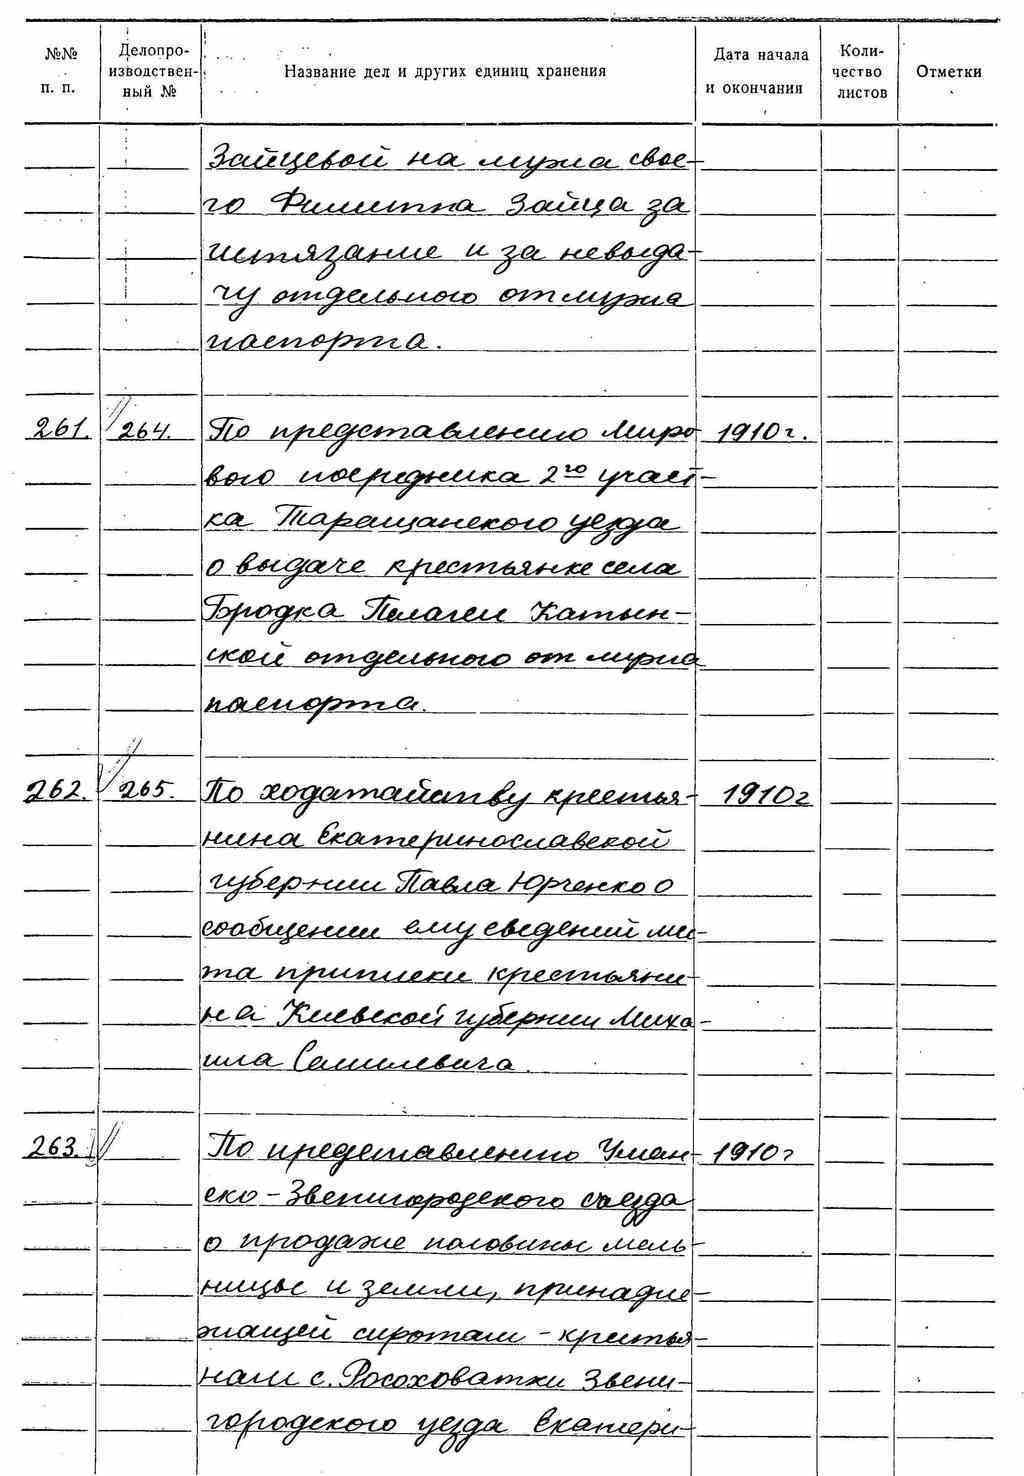 №№ п. п. Делопро-изводствен-ный № Название дел и других единиц хранения Дата начала и окончания Коли-чество листов Отметки
Зайцевой на мужа свое-
го Филиппа Зайца за
истязание и за невыда-
чу отдельного от мужа
паспорта.
261. 264. По представлению Миро- 1910 г.
вого посредника 2го участ-
ка Таращанского уезда
о выдаче крестьянке села
Бродка Пелагеи Катын-
ской отдельного от мужа
паспорта.
262. 265. По ходатайству крестья- 1910 г
нина Екатеринославской
губернии Павла Юрченко о
сообщении ему сведений ме-
та приписки крестьяни-
на Киевской губернии Миха-
ила Самилевича.
263. По представлению Уман- 1910 г
ско-Звенигородского съезда
о продаже половины мель-
ницы и земли, принадле-
жащей сиротам - крестья-
нам с. Росоховатки Звени-
городского уезда Екатери-